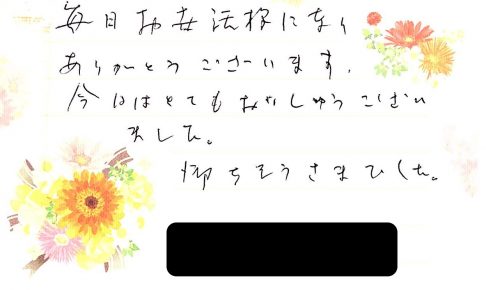 毎日お世話様になり
ありがとうございます。
今日はとてもおいしゅうございい
ました。
御ちそうさまでした。